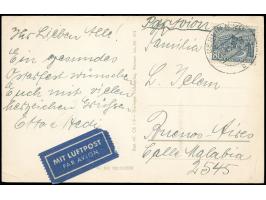 Ihr Lieben Alle!
Ein gesundes
Osterfest wünscht
Euch mit vielen
herzlichen Grüßen
Otto u. Hedi
MIT LUFTPOST
PAR AVION
Par Avion
Familia
L. Telem
Buenos-Aires
Calle Malabia
2545